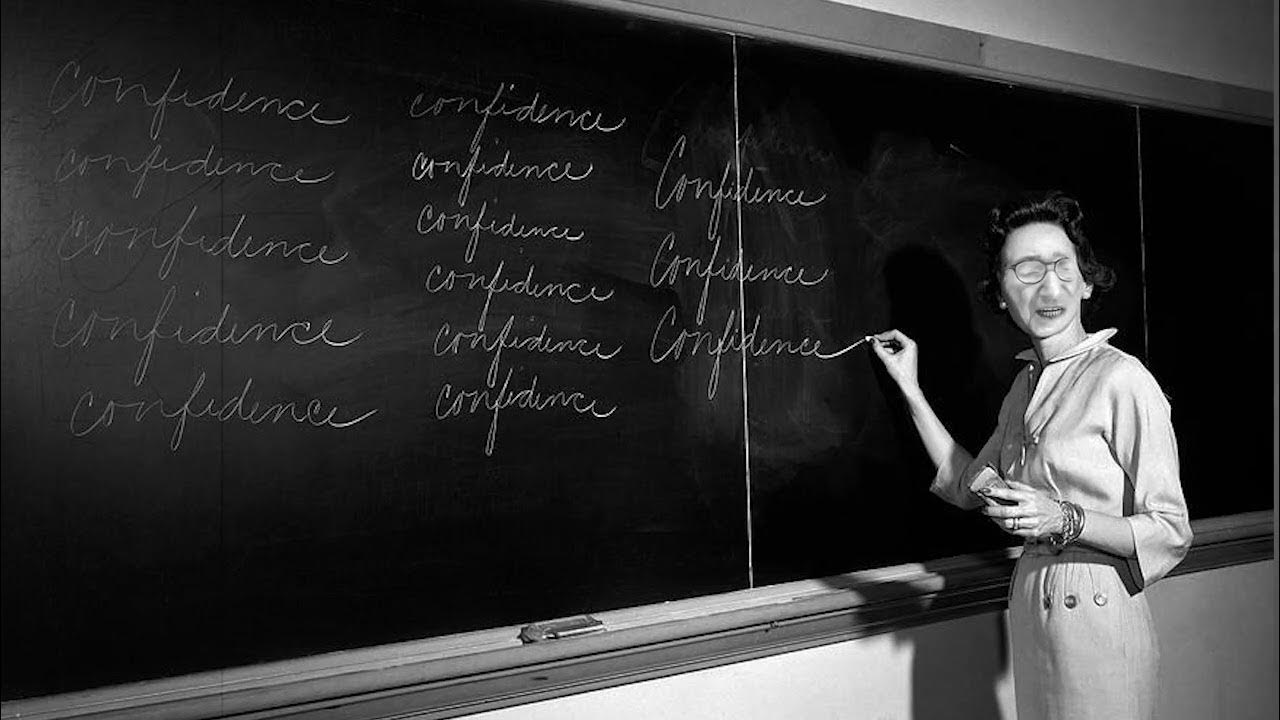 Confidence
confidence
Confidence
Confidence
confidence
confidence
confidence
confidence
confidence
confidence
confidence
Confidence
Confidence
Confidence